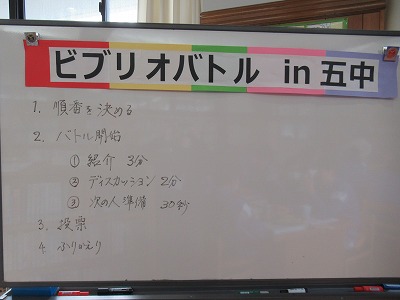 ビブリオバトル in 五中
1. 順番を決める
2. バトル開始
① 紹介 3分
② ディスカッション 2分
③ 次の人準備 30秒
3. 投票
4. ふりかえり